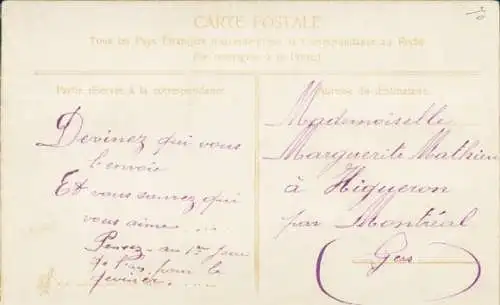 CARTE POSTALE
Tous les Pays Étrangers n'acceptent pas la Correspondance au Recto
(Se renseigner à la Poste)
Partie réservée à la correspondance
Adresse du destinataire
Devinez qui vous
l'envoie
Et vous saurez qui
vous aime ...
Pensez - au 1er jour
de l'an, pour le
deviner...
Mademoiselle
Marguerite Mathieu
à Higueron
par Montréal
Gers